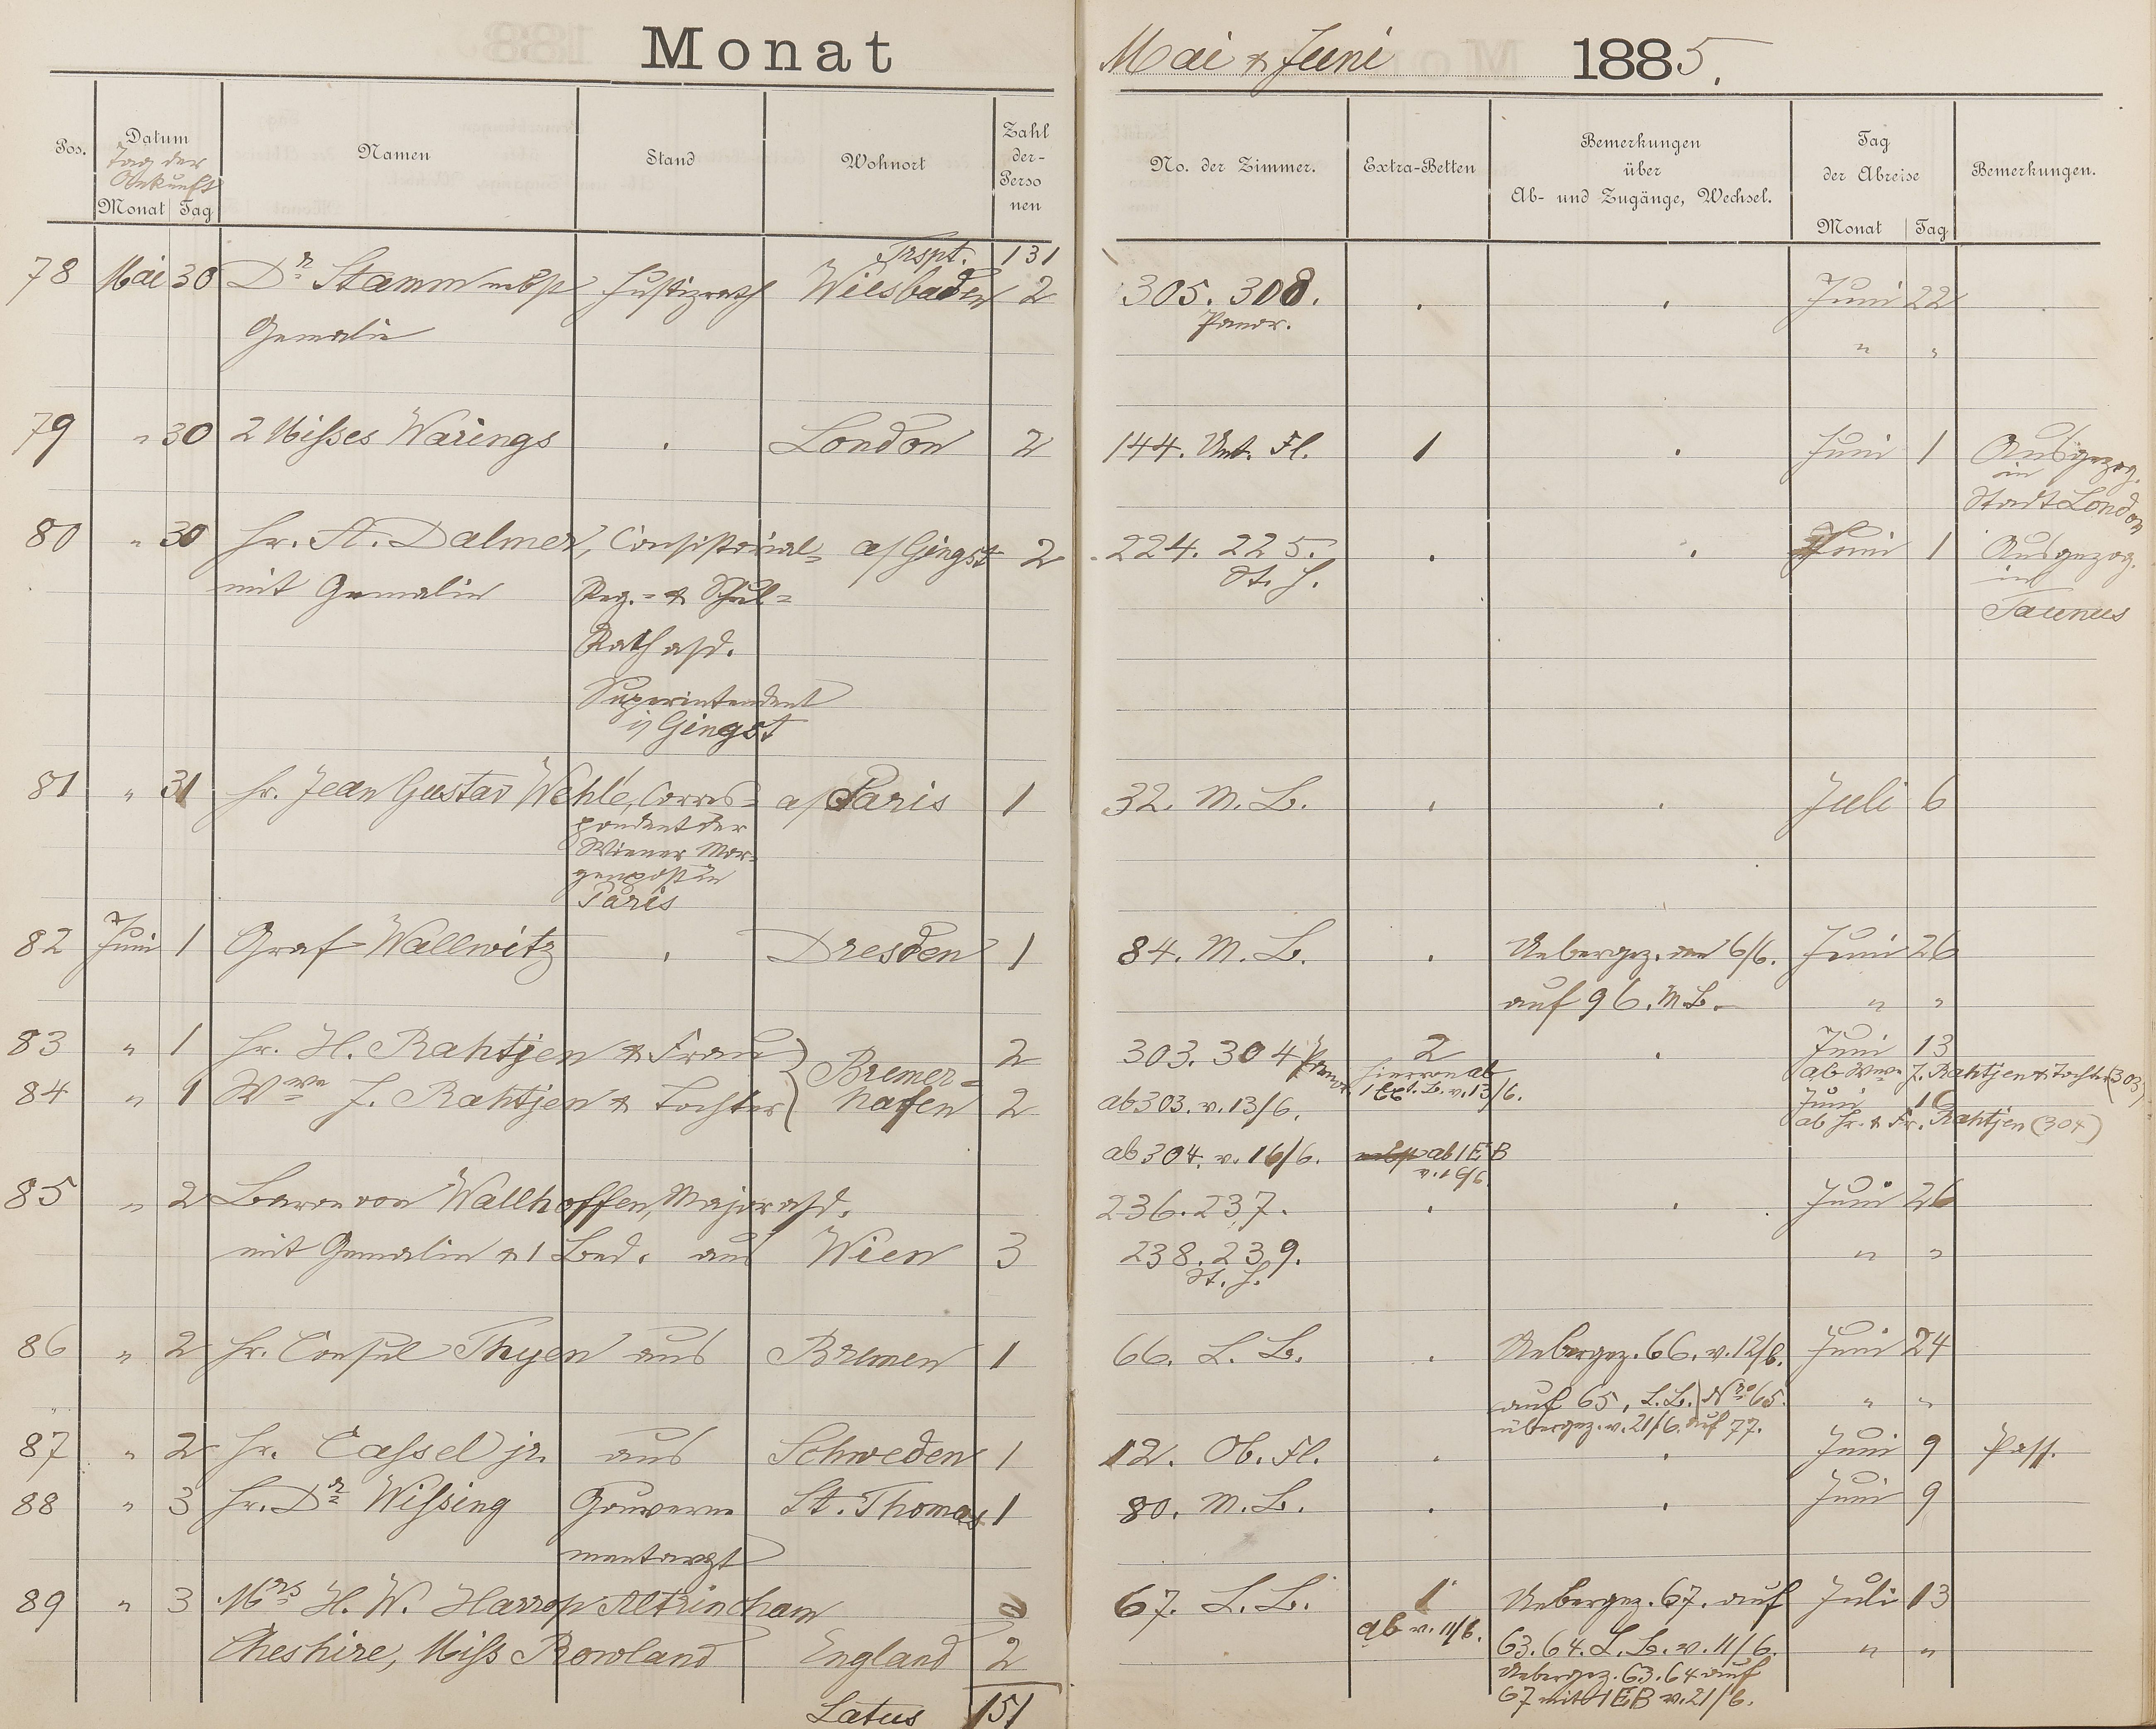 Monat
Mai & Juni 1885.
Pos. Datum Namen Stand Wohnort Zahl der Personen
Tag der Ankunft
Monat Tag
No. der Zimmer. Extra-Betten Bemerkungen über Ab- und Zugänge, Wechsel. Tag der Abreise Bemerkungen.
Monat Tag
Trspt. 131
78 Mai 30 Dr. Stamm nebst Justizrath Wiesbaden 2 305. 308. . . Juni 22
Gemalin Panor. " "
79 " 30 2 Misses Warings . London 2 144. Unt. Fl. 1 . Juni 1 Ausgezog.
in
Stadt London
80 " 30 Hr. A. Dalmer, Consistorial- a/Gingst 2 224. 225. . . Juni 1 Ausgezog.
mit Gemalin Reg.- & Schul- St. H. in
Taunus
Rath a/D.
Superintendent
i/ Gingst
81 " 31 Hr. Jean Gustav Wehle, Corres- a/Paris 1 32. M. B. . . Juli 6
pondent der
Wiener Mor-
genpost in
Paris
82 Juni 1 Graf Wallwitz . Dresden 1 84. M. B. . Uebergez. den 6/6. Juni 26
auf 96. M. B. " "
83 " 1 Hr. H. Rahtjen & Frau Bremer- 2 303. 304 Panor. 2 . Juni 13
hiervon ab ab Wwe J. Rahtjen & Tochter (303)
84 " 1 Wwe J. Rahtjen & Tochter hafen 2 ab 303. v. 13/6. 1 Ext. B. v. 13/6. Juni 16
ab Hr. & Fr. Rahtjen (304)
ab 304. v. 16/6. ab 1 EB
v. 16/6.
85 " 2 Baron von Wallhoffen, Major a/D. 236. 237. . . Juni 26
mit Gemalin & 1 Bed. aus Wien 3 238. 239. " "
St. H.
86 " 2 Hr. Consul Thyen aus Bremen 1 66. L. B. . Uebergez. 66. v. 12/6. Juni 24
auf 65, L. B. Nro 65. " "
übergez. v. 21/6. auf 77.
87 " 2 Hr. Cassel jr. aus Schweden 1 12. Ob. Fl. . . Juni 9 Pass.
88 " 3 Hr. Dr. Wissing Gouverne St. Thomas 1 80. M. B. . . Juni 9
mentarzt
89 " 3 Mrs H. W. Harrop Altrincham 67. L. B. 1 Uebergez. 67. auf Juli 13
ab v. 11/6.
Cheshire, Miss Rowland England 2 63. 64. L. B. v. 11/6. " "
Uebergez. 63. 64 auf
67 mit 1 EB v. 21/6.
Latus 151